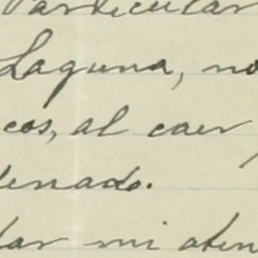 Particular
Laguna, no
cos, al caer
denado.
dar mi aten